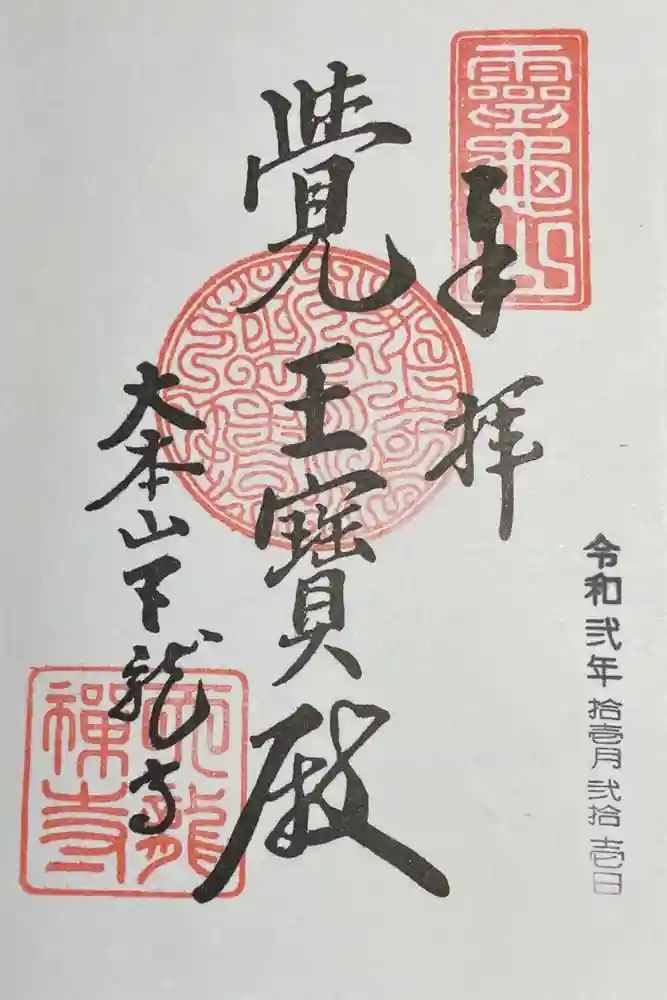 靈龜山
奉拝
令和弐年拾壱月弐拾壱日
覺王寶殿
大本山天龍寺
天龍
禪寺